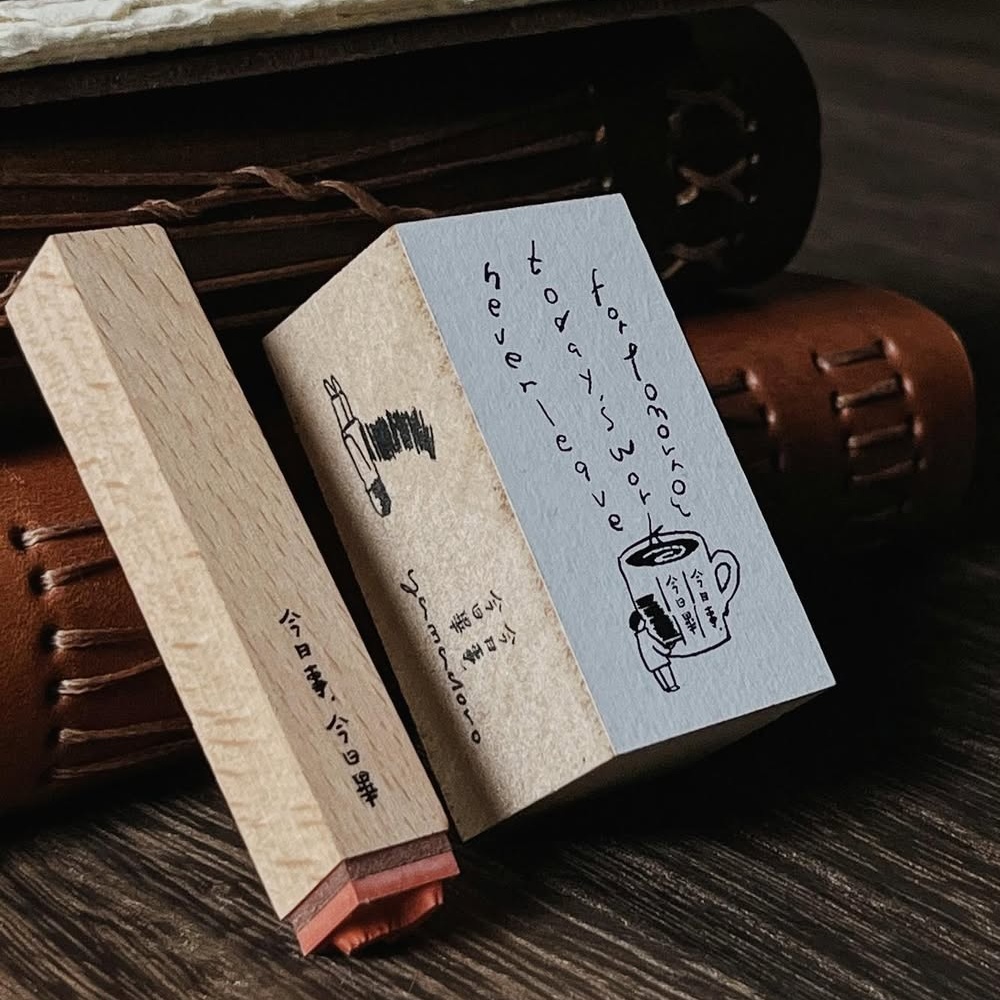 今日事、今日畢
yamadoro
今日畢
今日事、
never leave
today's work
for tomorrow
今日事、
今日畢